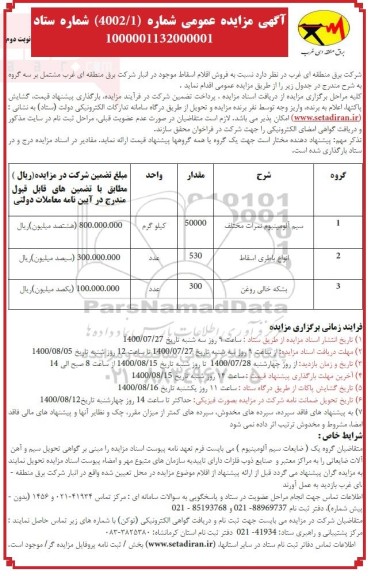 آگهی مزایده عمومی شماره (4002/1) شماره ستاد
1000001132000001
نوبت دوم
برق منطقه ای غرب
شرکت برق منطقه ای غرب در نظر دارد نسبت به فروش اقلام اسقاط موجود در انبار شرکت برق منطقه ای غرب مشتمل بر سه گروه
به شرح مندرج در جدول زیر را از طریق مزایده عمومی اقدام نماید .
کلیه مراحل برگزاری مزایده از دریافت اسناد مزایده ، پرداخت تضمین شرکت در فرآیند مزایده، بارگذاری پیشنهاد قیمت، گشایش
پاکتها، اعلام به برنده، واریز وجه توسط نفر برنده مزایده و تحویل از طریق درگاه سامانه تدارکات الکترونیکی دولت (ستاد) به نشانی :
(www.setadiran.ir) امکان پذیر می باشد. لازم است متقاضیان در صورت عدم عضویت قبلی، مراحل ثبت نام در سایت مذکور
و دریافت گواهی امضای الکترونیکی را جهت شرکت در فراخوان محقق سازند.
تذکر مهم: پیشنهاد دهنده مختار است جهت یک گروه یا همه گروهها پیشنهاد قیمت ارائه نماید، مقادیر در اسناد مزایده درج و در
ستاد بارگذاری شده است.
گروه شرح مقدار واحد مبلغ تضمین شرکت در مزایده(ریال )
مطابق با تضمین های قابل قبول
مندرج در آیین نامه معاملات دولتی
1 سیم آلومینیوم نمرات مختلف 50000 کیلو گرم 800.000.000 (هشتصد میلیون)ریال
2 انواع باطری اسقاط 530 عدد 300.000.000 (سیصد میلیون)ریال
3 بشکه خالی روغن 300 عدد 100.000.000 (یکصد میلیون)ریال
ParsNamadData
فرایند زمانی برگزاری مزایده
۱) تاریخ انتشار اسناد مزایده از طریق ستاد : ساعت ۹ روز سه شنبه تاریخ 1400/07/27
۲) مهلت دریافت اسناد مزایده: از ساعت ۹ روز سه شنبه تاریخ 1400/07/27 تا ساعت 12 روز چهارشنبه تاریخ 1400/08/05
۳) تاریخ و زمان بازدید: از روز چهارشنبه 1400/07/28 تا روز شنبه تاریخ 1400/08/15 از ساعت 8 صبح الی 14
۴) آخرین مهلت بارگذاری پیشنهاد قیمت : ساعت ۱۴ روز شنبه تاریخ 1400/08/15
۵) تاریخ گشایش پاکات از طریق درگاه ستاد : ساعت ۱۱ روز یکشنبه تاریخ 1400/08/16
۶) تاریخ تحویل ضمانت نامه شرکت در مزایده بصورت فیزیکی: حداکثر تا ساعت ۱۴ روز چهارشنبه تاریخ 1400/08/12
۷) به پیشنهاد های فاقد سپرده، سپرده های مخدوش، سپرده های کمتر از میزان مقرر، چک و نظایر آنها و پیشنهاد های مالی فاقد
امضاء مشروط و مخدوش ترتیب اثر داده نمی شود
شرایط خاص :
متقاضیان گروه یک ( ضایعات سیم آلومینیوم ) می بایست فرم تعهد نامه پیوست اسناد مزایده را مبنی بر گواهی تحویل سیم و آهن
آلات ضایعاتی را به مراکز معتبر و صنایع ذوب فلزات دارای تاییدیه سازمان های متبوع مهر و امضاء پیوست اسناد مزایده تحویل نمایند
به مزایده گران پیشنهاد می گردد قبل از ارائه پیشنهاد از اقلام موضوع مزایده در محل تعیین شده واقع در انبار شرکت برق منطقه -
ای غرب بازدید به عمل آورند
اطلاعات تماس جهت انجام مراحل عضویت در ستاد و پاسخگویی به سوالات سامانه ای : مرکز تماس ۴۱۹۳۴-۰۲۱ و ۱۴۵۶ (بدون
پیش شماره)، دفتر ثبت نام 88969737-021 و 85193768-021
متقاضیان شرکت در مزایده می بایست جهت ثبت نام و دریافت گواهی الکترونیکی (توکن) با شماره های زیر تماس حاصل نمایند :
مرکز پشتیبانی و راهبری ستاد: 41934-021 دفتر ثبت نام استان کرمانشاه: ۳۸۲۵۳۸۰-۰۸۳
اطلاعات تماس دفاتر ثبت نام ستاد در سایر استانها، (www.setadiran.ir) بخش / ثبت نامه پروفایل مزایده گر/ موجود است.